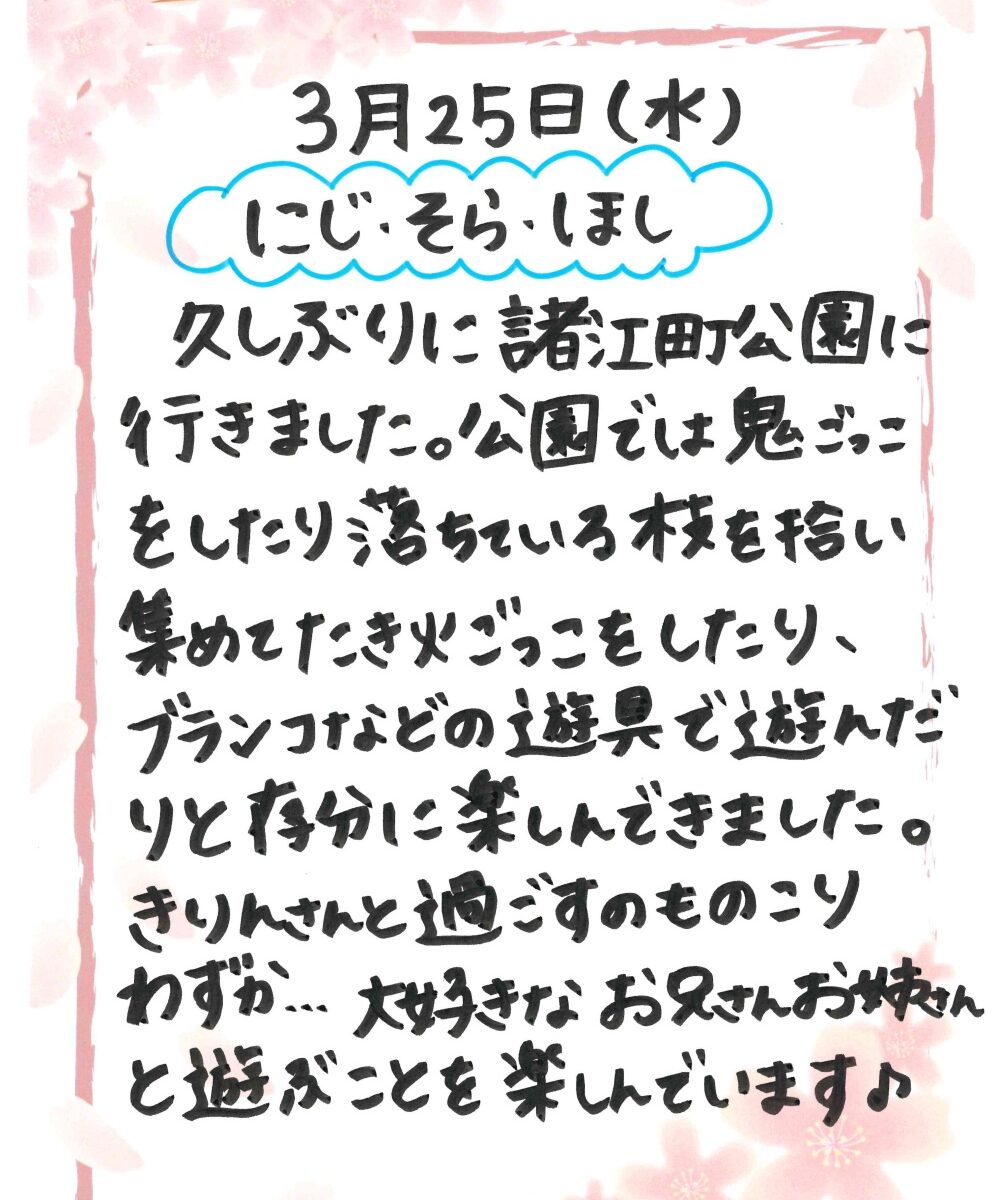 3月25日(水)
にじ・そら・ほし
久しぶりに諸江町公園に
行きました。公園では鬼ごっこ
をしたり落ちている枝を拾い
集めてたき火ごっこをしたり、
ブランコなどの遊具で遊んだ
りと存分に楽しんできました。
きりんさんと過ごすのものこり
わずか… 大好きなお兄さんお姉さん
と遊ぶことを楽しんでいます♪